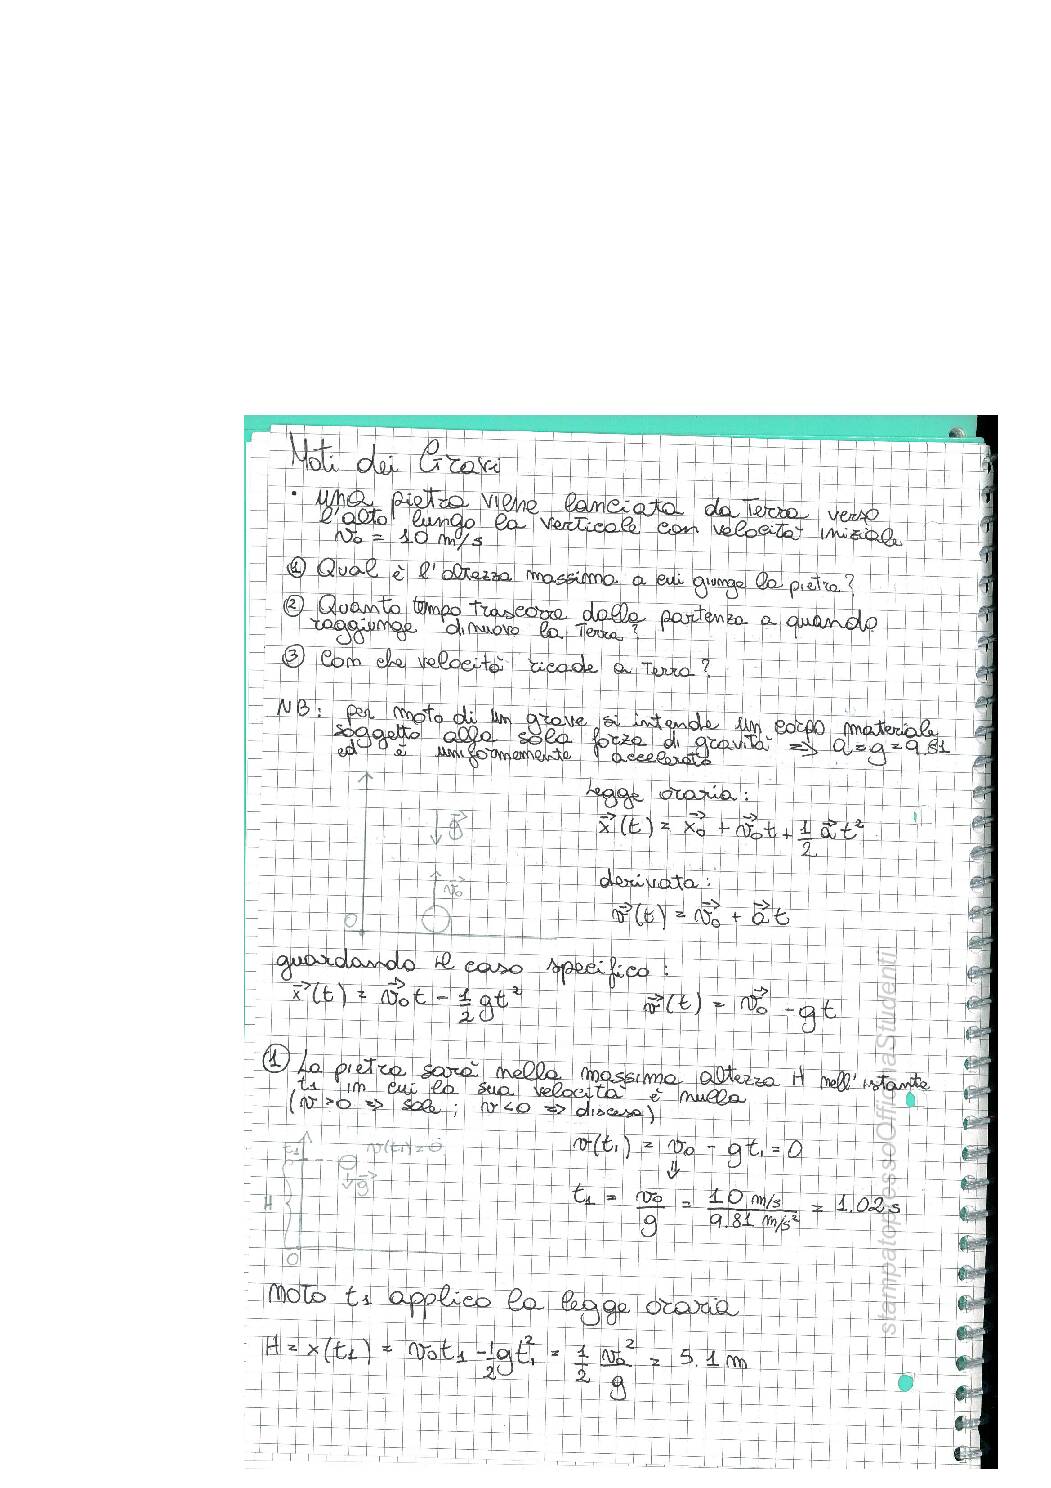 Moti dei Gravi
• una pietra viene lanciata da Terra verso
l'alto lungo la verticale con velocità iniziale
v₀ = 10 m/s
① Qual è l'altezza massima a cui giunge la pietra?
② Quanto tempo trascorre dalla partenza a quando
raggiunge di nuovo la Terra?
③ Con che velocità ricade a Terra?
NB: per moto di un grave si intende un corpo materiale
soggetto alla sola forza di gravità => a = g = 9.81
ed è uniformemente accelerato
Legge oraria:
x⃗(t) = x⃗₀ + v⃗₀t + 1/2 a⃗t²
g⃗
derivata:
v⃗₀
v⃗(t) = v⃗₀ + a⃗t
O
guardando il caso specifico:
x⃗(t) = v⃗₀t - 1/2 gt² v⃗(t) = v⃗₀ - gt
① La pietra sarà nella massima altezza H nell'istante
t₁ in cui la sua velocità è nulla
(v>0 => sale; v<0 => discesa)
t₁ v(t₁) = 0
v(t₁) = v₀ - gt₁ = 0
⇓
g⃗
H
t₁ = v₀/g = 10 m/s / 9.81 m/s² = 1.02 s
O
Moto t₁ applico la legge oraria
H = x(t₁) = v₀t₁ - 1/2 gt₁² = 1/2 v₀²/g = 5.1 m
stampatopressoOfficinaStudenti